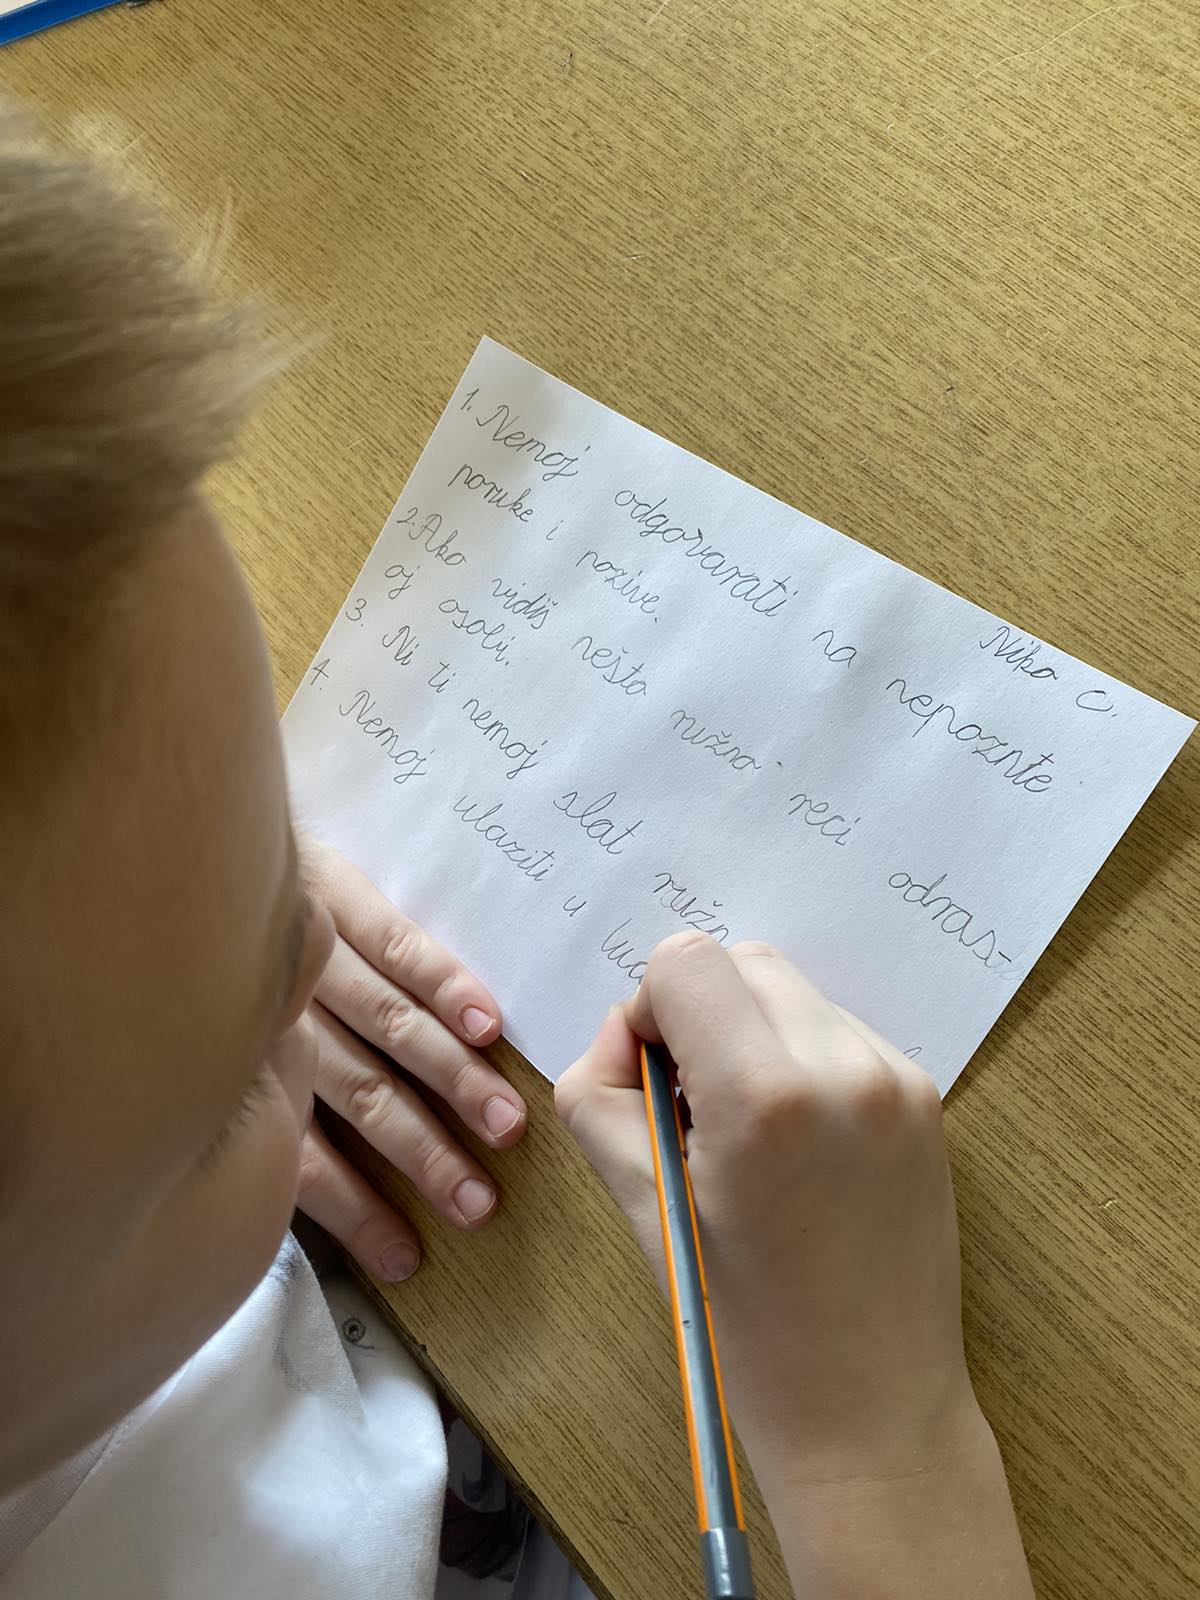 Niko C.
1. Nemoj odgovarati na nepoznte
poruke i pozive.
2. Ako vidiš nešto ružno reci odras-
oj osobi.
3. Ni ti nemoj slat
4. Nemoj ulaziti u